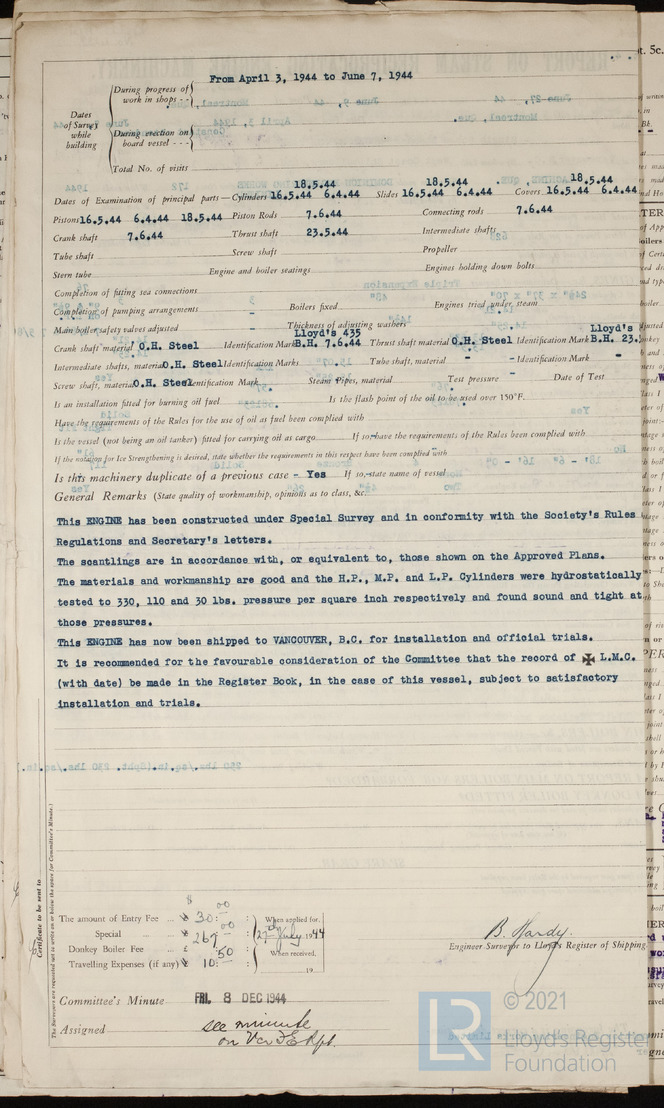 From April 3, 1944 to June 7, 1944
During progress of work in shops - -
Dates of Survey while building
During erection on board vessel - - -
Total No. of visits
18.5.44 18.5.44 18.5.44
Dates of Examination of principal parts—Cylinders 16.5.44 6.4.44 Slides 16.5.44 6.4.44 Covers 16.5.44 6.4.44
Pistons 16.5.44 6.4.44 18.5.44 Piston Rods 7.6.44 Connecting rods 7.6.44
Crank shaft 7.6.44 Thrust shaft 23.5.44 Intermediate shafts
Tube shaft Screw shaft Propeller
Stern tube Engine and boiler seatings Engines holding down bolts
Completion of fitting sea connections
Completion of pumping arrangements - Boilers fixed Engines tried under steam
Main boiler safety valves adjusted Thickness of adjusting washers
Lloyd's 435 Lloyd's
Crank shaft material O.H. Steel Identification Mark B.H. 7.6.44 Thrust shaft material O.H. Steel Identification Mark B.H. 23.
Intermediate shafts, material O.H. Steel Identification Marks Tube shaft, material - - Identification Mark -
Screw shaft, material O.H. Steel Identification Mark Steam Pipes, material Test pressure Date of Test
Is an installation fitted for burning oil fuel Is the flash point of the oil to be used over 150°F.
Have the requirements of the Rules for the use of oil as fuel been complied with
Is the vessel (not being an oil tanker) fitted for carrying oil as cargo If so, have the requirements of the Rules been complied with
If the notation for Ice Strengthening is desired, state whether the requirements in this respect have been complied with
Is this machinery duplicate of a previous case - Yes If so, state name of vessel
General Remarks (State quality of workmanship, opinions as to class, &c.
This ENGINE has been constructed under Special Survey and in conformity with the Society's Rules
Regulations and Secretary's letters.
The scantlings are in accordance with, or equivalent to, those shown on the Approved Plans.
The materials and workmanship are good and the H.P., M.P. and L.P. Cylinders were hydrostatically
tested to 330, 110 and 30 lbs. pressure per square inch respectively and found sound and tight at
those pressures.
This ENGINE has now been shipped to VANCOUVER, B.C. for installation and official trials.
It is recommended for the favourable consideration of the Committee that the record of ✠ L.M.C.
(with date) be made in the Register Book, in the case of this vessel, subject to satisfactory
installation and trials.
Certificate to be sent to
(The Surveyors are requested not to write on or below the space for Committee's Minute.)
$
The amount of Entry Fee ... 30:00 When applied for,
Special ... 269:00 27th July 1944
Donkey Boiler Fee ... £ When received,
Travelling Expenses (if any) 10:50 19
B. Hardy.
Engineer Surveyor to Lloyd's Register of Shipping.
Committee's Minute FRI. 8 DEC 1944
Assigned see minute
on Vcr F.E. Rpt.
LR © 2021
Lloyd's Register
Foundation